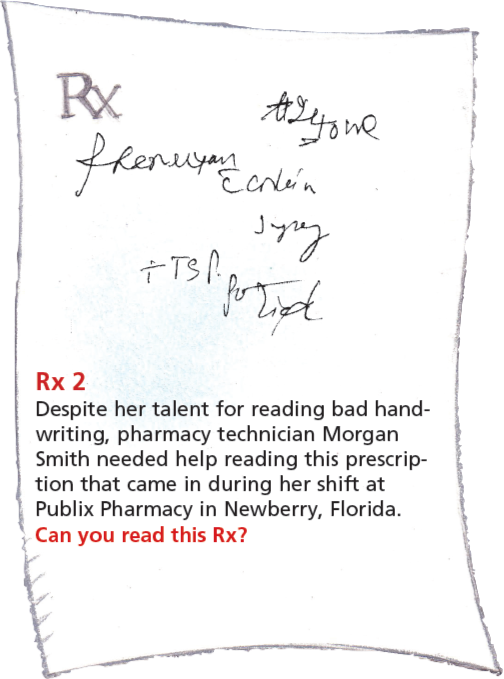 Rx
Phenergan
Codeine
Syrup
TSP. po
Rx 2
Despite her talent for reading bad hand-
writing, pharmacy technician Morgan
Smith needed help reading this prescrip-
tion that came in during her shift at
Publix Pharmacy in Newberry, Florida.
Can you read this Rx?